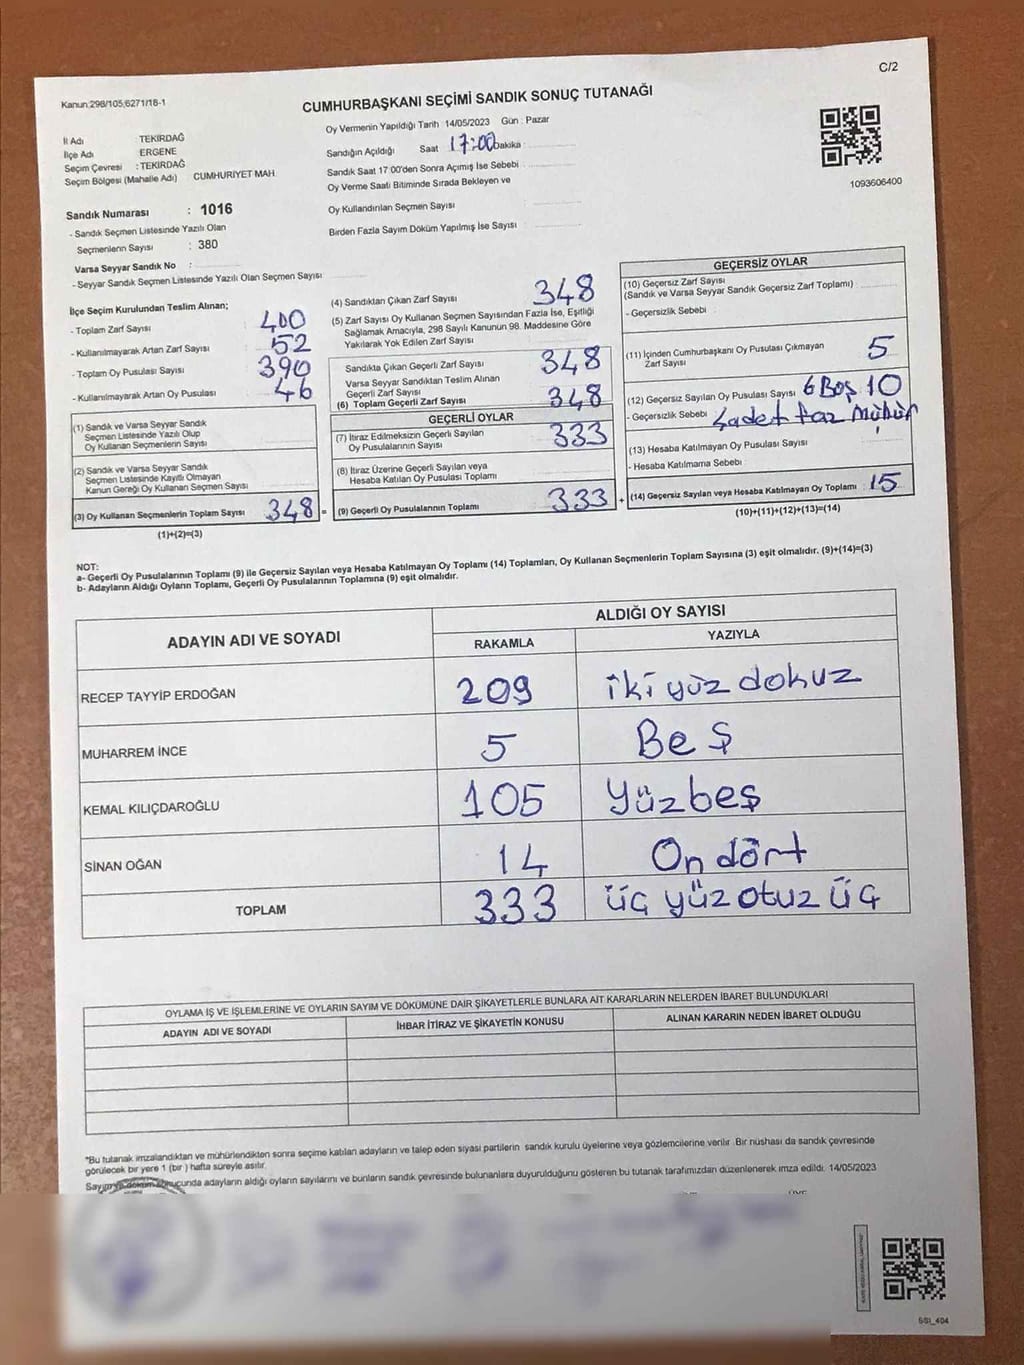 C/2
Kanun:298/105;6271/18-1
CUMHURBAŞKANI SEÇİMİ SANDIK SONUÇ TUTANAĞI
İl Adı TEKİRDAĞ
İlçe Adı ERGENE
Seçim Çevresi : TEKİRDAĞ
Seçim Bölgesi (Mahalle Adı) CUMHURİYET MAH.
Oy Vermenin Yapıldığı Tarih 14/05/2023 Gün : Pazar
Sandığın Açıldığı Saat 17:00 Dakika :
Sandık Saat 17:00'den Sonra Açımış İse Sebebi
Oy Verme Saati Bitiminde Sırada Bekleyen ve
Oy Kullandırılan Seçmen Sayısı
Birden Fazla Sayım Döküm Yapılmış İse Sayısı
1093606400
Sandık Numarası : 1016
- Sandık Seçmen Listesinde Yazılı Olan
Seçmenlerin Sayısı : 380
Varsa Seyyar Sandık No :
- Seyyar Sandık Seçmen Listesinde Yazılı Olan Seçmen Sayısı
İlçe Seçim Kurulundan Teslim Alınan;
- Toplam Zarf Sayısı 400
- Kullanılmayarak Artan Zarf Sayısı 52
- Toplam Oy Pusulası Sayısı 390
- Kullanılmayarak Artan Oy Pusulası 46
(1) Sandık ve Varsa Seyyar Sandık
Seçmen Listesinde Yazılı Olup
Oy Kullanan Seçmenlerin Sayısı
(2) Sandık ve Varsa Seyyar Sandık
Seçmen Listesinde Kayıtlı Olmayan
Kanun Gereği Oy Kullanan Seçmen Sayısı
(3) Oy Kullanan Seçmenlerin Toplam Sayısı 348 =
(1)+(2)=(3)
(4) Sandıktan Çıkan Zarf Sayısı 348
(5) Zarf Sayısı Oy Kullanan Seçmen Sayısından Fazla İse, Eşitliği
Sağlamak Amacıyla, 298 Sayılı Kanunun 98. Maddesine Göre
Yakılarak Yok Edilen Zarf Sayısı
Sandıkta Çıkan Geçerli Zarf Sayısı 348
Varsa Seyyar Sandıktan Teslim Alınan
Geçerli Zarf Sayısı
(6) Toplam Geçerli Zarf Sayısı 348
GEÇERLİ OYLAR
(7) İtiraz Edilmeksizin Geçerli Sayılan
Oy Pusulalarının Sayısı 333
(8) İtiraz Üzerine Geçerli Sayılan veya
Hesaba Katılan Oy Pusulası Toplamı
(9) Geçerli Oy Pusulalarının Toplamı 333 +
GEÇERSİZ OYLAR
(10) Geçersiz Zarf Sayısı
(Sandık ve Varsa Seyyar Sandık Geçersiz Zarf Toplamı)
- Geçersizlik Sebebi
(11) İçinden Cumhurbaşkanı Oy Pusulası Çıkmayan
Zarf Sayısı 5
(12) Geçersiz Sayılan Oy Pusulası Sayısı 6 Boş 10
- Geçersizlik Sebebi
(13) Hesaba Katılmayan Oy Pusulası Sayısı
- Hesaba Katılmama Sebebi
(14) Geçersiz Sayılan veya Hesaba Katılmayan Oy Toplamı 15
(10)+(11)+(12)+(13)=(14)
NOT:
a- Geçerli Oy Pusulalarının Toplamı (9) ile Geçersiz Sayılan veya Hesaba Katılmayan Oy Toplamı (14) Toplamları, Oy Kullanan Seçmenlerin Toplam Sayısına (3) eşit olmalıdır. (9)+(14)=(3)
b- Adayların Aldığı Oyların Toplamı, Geçerli Oy Pusulalarının Toplamına (9) eşit olmalıdır.
ADAYIN ADI VE SOYADI ALDIĞI OY SAYISI
RAKAMLA YAZIYLA
RECEP TAYYİP ERDOĞAN 209 iki yüz dokuz
MUHARREM İNCE 5 Beş
KEMAL KILIÇDAROĞLU 105 Yüzbeş
SİNAN OĞAN 14 On dört
TOPLAM 333 üç yüz otuz üç
OYLAMA İŞ VE İŞLEMLERİNE VE OYLARIN SAYIM VE DÖKÜMÜNE DAİR ŞİKAYETLERLE BUNLARA AİT KARARLARIN NELERDEN İBARET BULUNDUKLARI
ADAYIN ADI VE SOYADI İHBAR İTİRAZ VE ŞİKAYETİN KONUSU ALINAN KARARIN NEDEN İBARET OLDUĞU
*Bu tutanak imzalandıktan ve mühürlendikten sonra seçime katılan adayların ve talep eden siyasi partilerin sandık kurulu üyelerine veya gözlemcilerine verilir. Bir nüshası da sandık çevresinde
görülecek bir yere 1 (bir) hafta süreyle asılır.
Sayım ve döküm sonucunda adayların aldığı oyların sayılarını ve bunların sandık çevresinde bulunanlara duyurulduğunu gösteren bu tutanak tarafımızdan düzenlenerek imza edildi. 14/05/2023
SSI_404